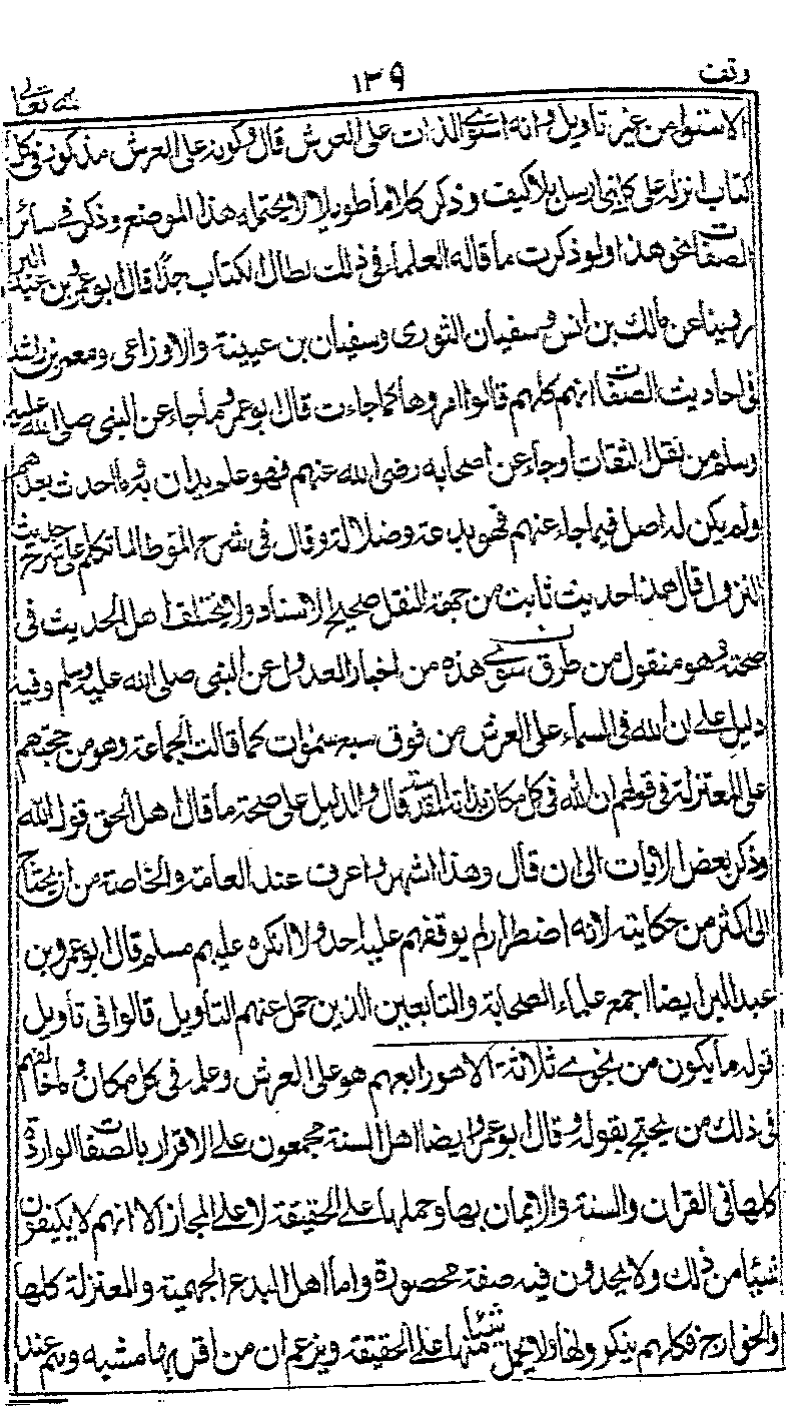 ١٣٩
الاستواء من غير تاويل وانه استوى الذات على العرش قال وكونه على العرش مذكور فى كل
كتاب انزله على كل نبى ارسل بلا كيف وذكر كلاما طويلا لا يحتمله هذا الموضع وذكر فى سائر
الصفات نحو هذا ولو ذكرت ما قاله العلماء فى ذلك لطال الكتاب جدا قال ابو عمر وبن عبد البر
روينا عن مالك بن انس وسفيان الثورى وسفيان بن عيينة والاوزاعى ومعمر بن راشد
فى احاديث الصفات انهم كلهم قالوا امروها كما جاءت قال ابو عمر وما جاء عن النبى صلى الله عليه
وسلم من نقل الثقات او جاء عن اصحابه رضى الله عنهم فهو علم يدان به وما احدث بعدهم
ولم يكن له اصل فيما جاء عنهم فهو بدعة وضلالة وقال فى شرح الموطا لما تكلم على شرح حديث
النزول قال هذا حديث ثابت من جهة النقل صحيح الاسناد ولا يختلف اهل الحديث فى
صحته وهو منقول من طرق سوى هذه من اخبار العدول عن النبى صلى الله عليه وسلم وفيه
دليل على ان الله فى السماء على العرش من فوق سبع سموات كما قالت الجماعة وهو من حجتهم
على المعتزلة فى قولهم ان الله فى كل مكان بذاته المقدسة قال والدليل على صحة ما قال اهل الحق قول الله
وذكر بعض الايات الى ان قال وهذا اشهر واعرف عند العامة والخاصة من ان يحتاج
الى اكثر من حكايته لانه اضطرار لم يوقفهم عليه احد ولا انكره عليهم مسلم قال ابو عمر وبن
عبد البر ايضا اجمع علماء الصحابة والتابعين الذين حمل عنهم التاويل قالوا فى تأويل
قوله ما يكون من نجوى ثلاثة الا هو رابعهم هو على العرش وعلمه فى كل مكان وما خالفهم
فى ذلك من يحتج بقوله وقال ابو عمر وايضا اهل السنة مجمعون على الاقرار بالصفات الواردة
كلها فى القران والسنة والايمان بها وحملها على الحقيقة لا على المجاز الا انهم لا يكيفون
شيئا من ذلك ولا يحدون فيه صفة محصورة واما اهل البدع الجهمية والمعتزلة كلها
والخوارج فكلهم ينكرونها ولا يحمل شيئا منها على الحقيقة ويزعم ان من اقر بها مشبه وهم عند